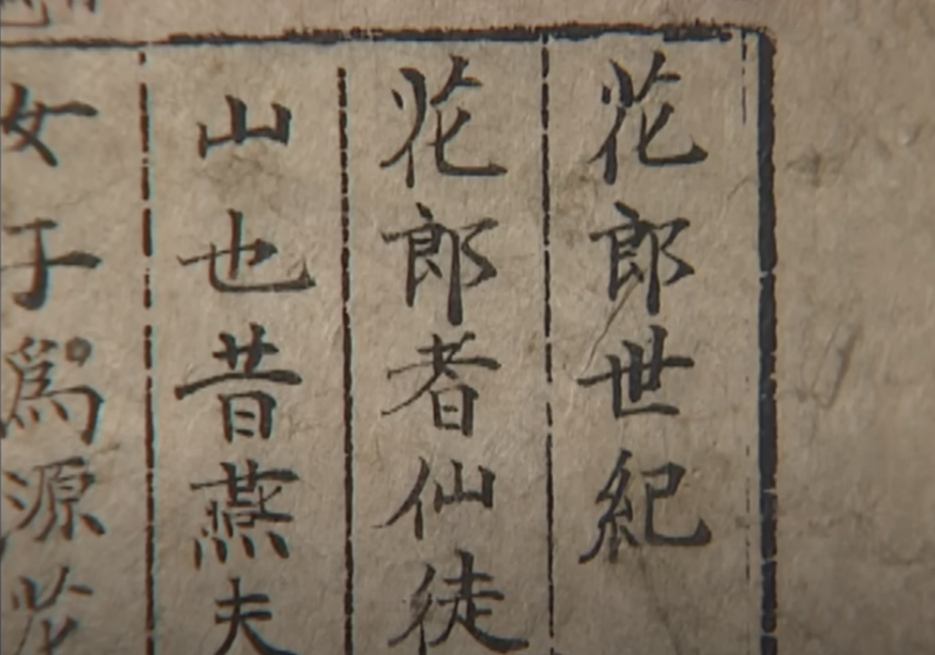 花郎世紀
花郎者仙徒
山也昔燕夫
女子爲源花